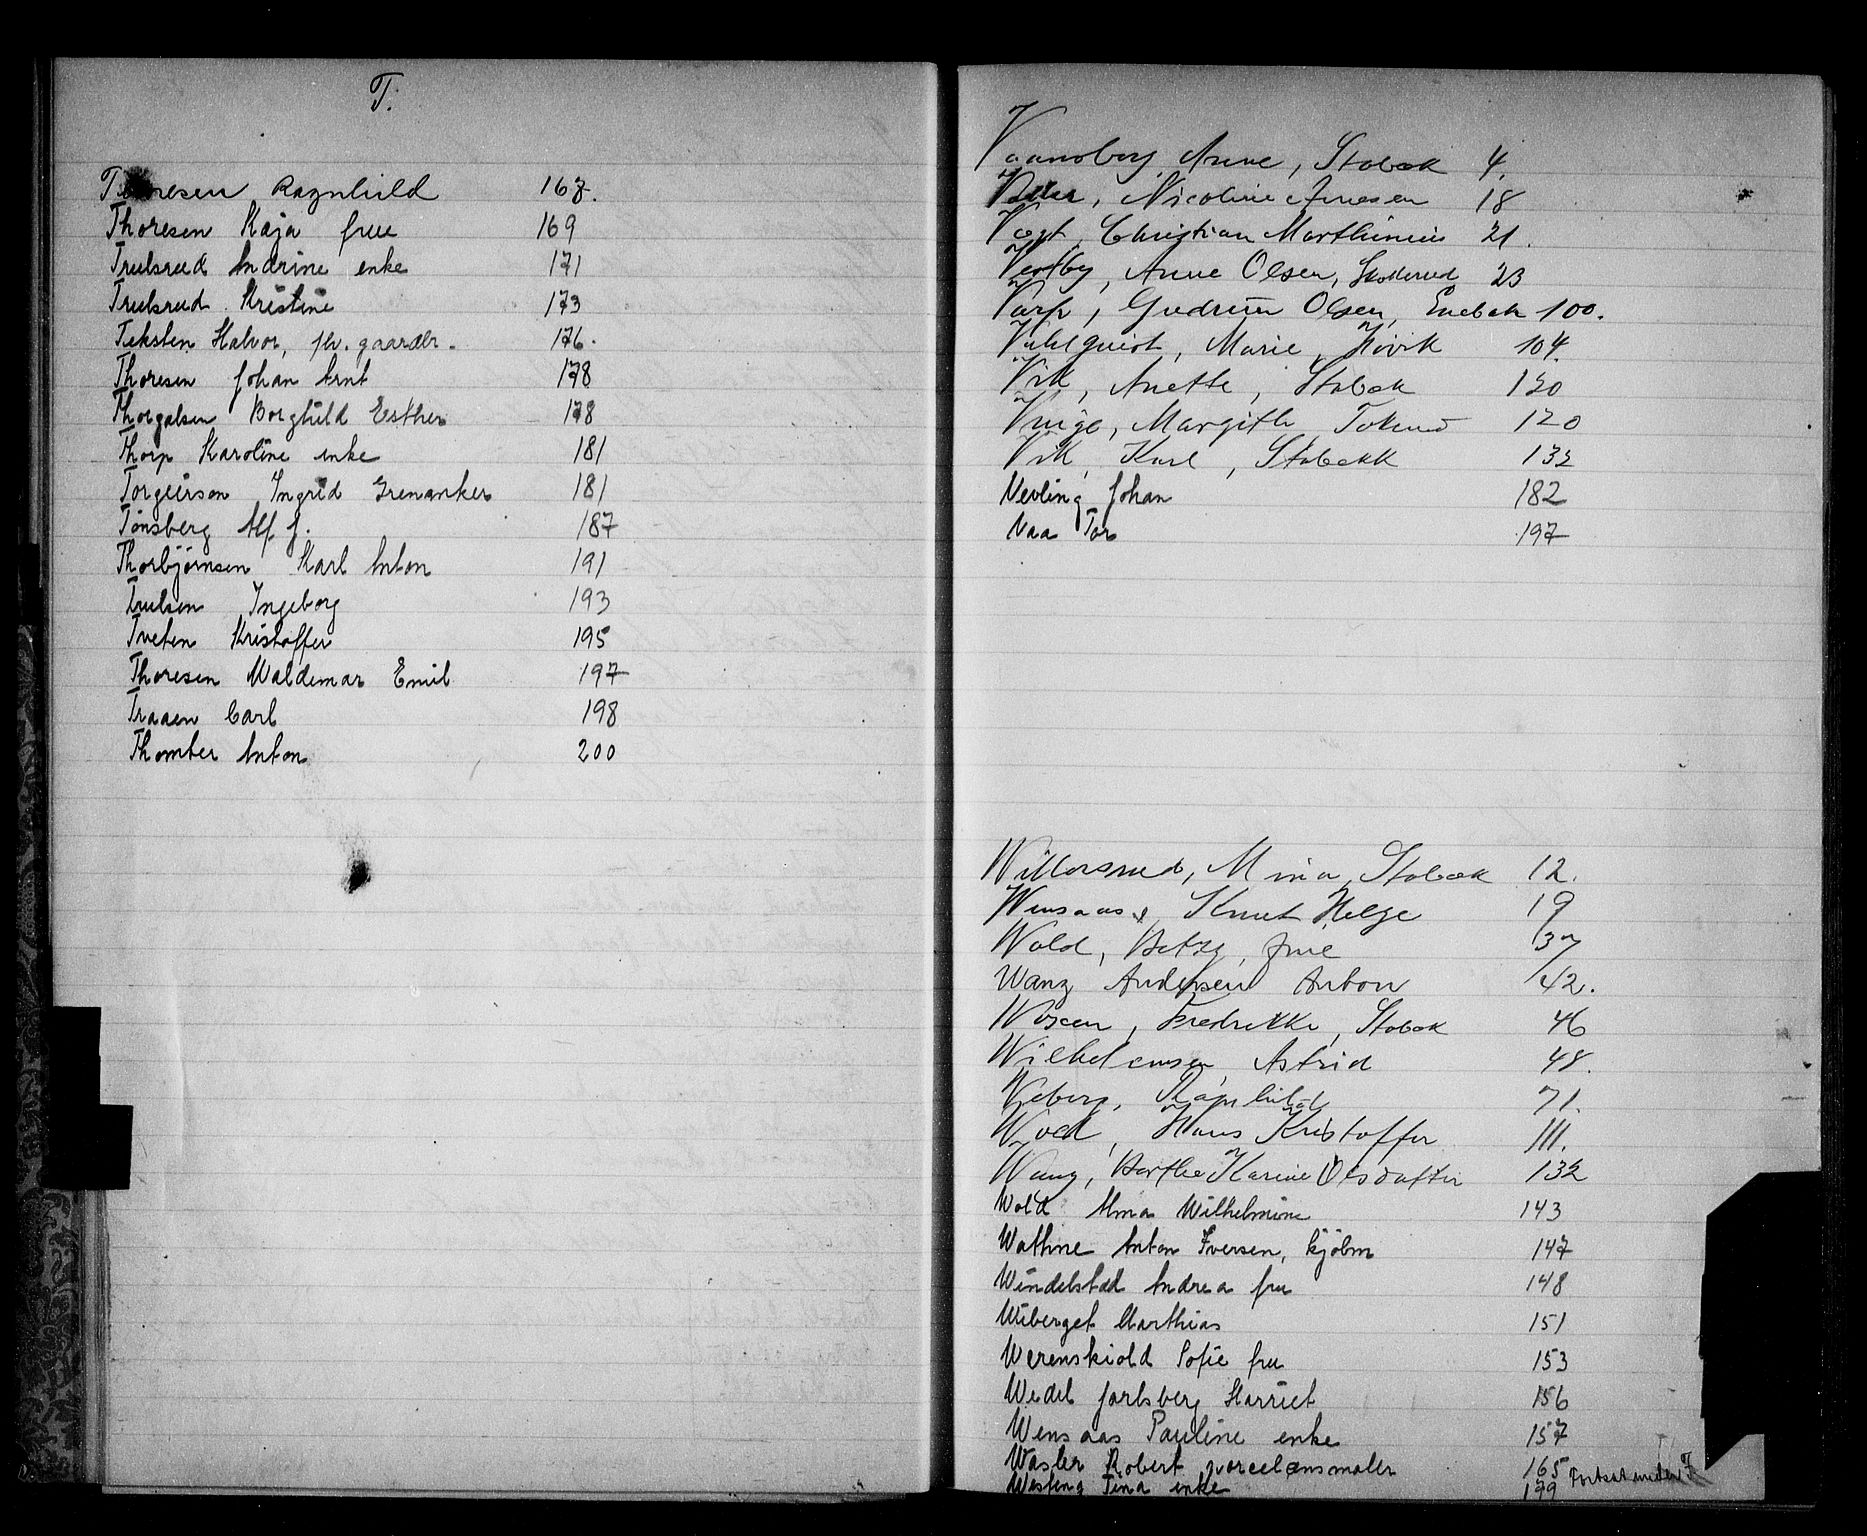 T.
Thoresen Ragnhild 167.
Thoresen Kaja frue 169
Trulsrud Andrine enke 171
Trulsrud Kristine 173
Teksten Halvor, fhv. gaardbr. 176.
Thoresen Johan Arnt 178
Thorgalsen Borghild Esther 178
Thorp Karoline enke 181
Torgeirson Ingrid Grenanker 181
Tønsberg Alf J. 187
Thorbjørnsen Karl Anton 191
Trulsen Ingeborg 193
Tveten Kristoffer 195
Thoresen Waldemar Emil 197
Traaen Carl 198
Thomter Anton 200
Anne, Stabæk 4.
Nicoline Arnesen 18
Vogt, Christian Marthinius 21.
Vestby, Anne Olsen, 23
Varp, Gudrun Olsen, Enebak 100.
Vahlquist, Marie, Høvik 104.
Vik, Anette, Stabæk 120
Margith 120
Vik, Karl, Stabækk 132
Vevling Johan 182
Vaa Tor 197
Willersrud, Mina, Stabæk 12.
Wensaas, Knut Helge 19
Wold, Betzy, frue 37
Wang Andersen Anton 42.
Fredrikke, Stabæk 46
Wilhelmsen, Astrid 48.
Wiberg, Ragnhild 71.
Wold, Hans Kristoffer 111.
Wang, Berthe Karine Olsdatter 132
Wold Alma Wilhelmine 143
Wathne Anton Iversen, kjøbm 147
Windelstad Andrea fru 148
Wiberget Marthias 151
Werenskiold Sofie fru 153
Wedel Jarlsberg Harriet 156
Wensaas Pauline enke 157
Wasler Robert porcelænsmaler 165
Westeng Tina enke 199 Fortsat under F